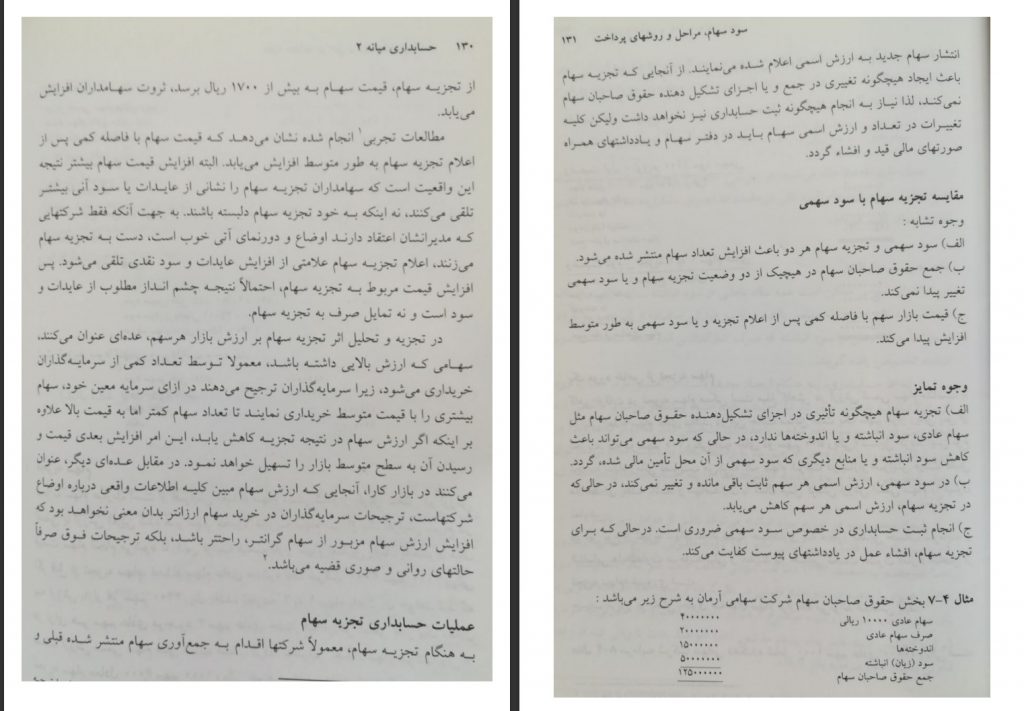 ۱۳۰ حسابداری میانه ۲
از تجزیه سهام، قیمت سهام به بیش از ۱۷۰۰ ریال برسد، ثروت سهامداران افزایش
می‌یابد.
مطالعات تجربی۱ انجام شده نشان می‌دهد که قیمت سهام با فاصله کمی پس از
اعلام تجزیه سهام به طور متوسط افزایش می‌یابد. البته افزایش قیمت سهام بیشتر نتیجه
این واقعیت است که سهامداران تجزیه سهام را نشانی از عایدات یا سود آتی بیشتر
تلقی می‌کنند، نه اینکه به خود تجزیه سهام دلبسته باشند. به جهت آنکه فقط شرکتهایی
که مدیرانشان اعتقاد دارند اوضاع و دورنمای آتی خوب است، دست به تجزیه سهام
می‌زنند، اعلام تجزیه سهام علامتی از افزایش عایدات و سود نقدی تلقی می‌شود. پس
افزایش قیمت مربوط به تجزیه سهام، احتمالاً نتیجه چشم انداز مطلوب از عایدات و
سود است و نه تمایل صرف به تجزیه سهام.
در تجزیه و تحلیل اثر تجزیه سهام بر ارزش بازار هرسهم، عده‌ای عنوان می‌کنند،
سهامی که ارزش بالایی داشته باشد، معمولا توسط تعداد کمی از سرمایه‌گذاران
خریداری می‌شود، زیرا سرمایه‌گذاران ترجیح می‌دهند در ازای سرمایه معین خود، سهام
بیشتری را با قیمت متوسط خریداری نمایند تا تعداد سهام کمتر اما به قیمت بالا علاوه
بر اینکه اگر ارزش سهام در نتیجه تجزیه کاهش یابد، این امر افزایش بعدی قیمت و
رسیدن آن به سطح متوسط بازار را تسهیل خواهد نمود. در مقابل عده‌ای دیگر، عنوان
می‌کنند در بازار کارا، آنجایی که ارزش سهام مبین کلیه اطلاعات واقعی درباره اوضاع
شرکتهاست، ترجیحات سرمایه‌گذاران در خرید سهام ارزانتر بدان معنی نخواهد بود که
افزایش ارزش سهام مزبور از سهام گرانتر، راحتتر باشد، بلکه ترجیحات فوق صرفاً
حالتهای روانی و صوری قضیه می‌باشد.۲
عملیات حسابداری تجزیه سهام
به هنگام تجزیه سهام، معمولاً شرکتها اقدام به جمع‌آوری سهام منتشر شده قبلی و
سود سهام، مراحل و روشهای پرداخت ۱۳۱
انتشار سهام جدید به ارزش اسمی اعلام شده می‌نمایند. از آنجایی که تجزیه سهام
باعث ایجاد هیچگونه تغییری در جمع و یا اجزای تشکیل دهنده حقوق صاحبان سهام
نمی‌کند، لذا نیاز به انجام هیچگونه ثبت حسابداری نیز نخواهد داشت ولیکن کلیه
تغییرات در تعداد و ارزش اسمی سهام باید در دفتر سهام و یادداشتهای همراه
صورتهای مالی قید و افشاء گردد.
مقایسه تجزیه سهام با سود سهمی
وجوه تشابه :
الف) سود سهمی و تجزیه سهام هر دو باعث افزایش تعداد سهام منتشر شده می‌شود.
ب) جمع حقوق صاحبان سهام در هیچیک از دو وضعیت تجزیه سهام و یا سود سهمی
تغییر پیدا نمی‌کند.
ج) قیمت بازار سهم با فاصله کمی پس از اعلام تجزیه و یا سود سهمی به طور متوسط
افزایش پیدا می‌کند.
وجوه تمایز
الف) تجزیه سهام هیچگونه تأثیری در اجزای تشکیل‌دهنده حقوق صاحبان سهام مثل
سهام عادی، سود انباشته و یا اندوخته‌ها ندارد، در حالی که سود سهمی می‌تواند باعث
کاهش سود انباشته و یا منابع دیگری که سود سهمی از آن محل تأمین مالی شده، گردد.
ب) در سود سهمی، ارزش اسمی هر سهم ثابت باقی مانده و تغییر نمی‌کند، در حالی‌که
در تجزیه سهام، ارزش اسمی هر سهم کاهش می‌یابد.
ج) انجام ثبت حسابداری در خصوص سود سهمی ضروری است. درحالی‌که برای
تجزیه سهام، افشاء عمل در یادداشتهای پیوست کفایت می‌کند.
مثال ۴-۷ بخش حقوق صاحبان سهام شرکت سهامی آرمان به شرح زیر می‌باشد :
سهام عادی ۱۰۰۰۰ ریالی ۴۰۰۰۰۰۰۰
صرف سهام عادی ۲۰۰۰۰۰۰۰
اندوخته‌ها ۱۵۰۰۰۰۰۰
سود (زیان) انباشته ۵۰۰۰۰۰۰۰
جمع حقوق صاحبان سهام ۱۲۵۰۰۰۰۰۰